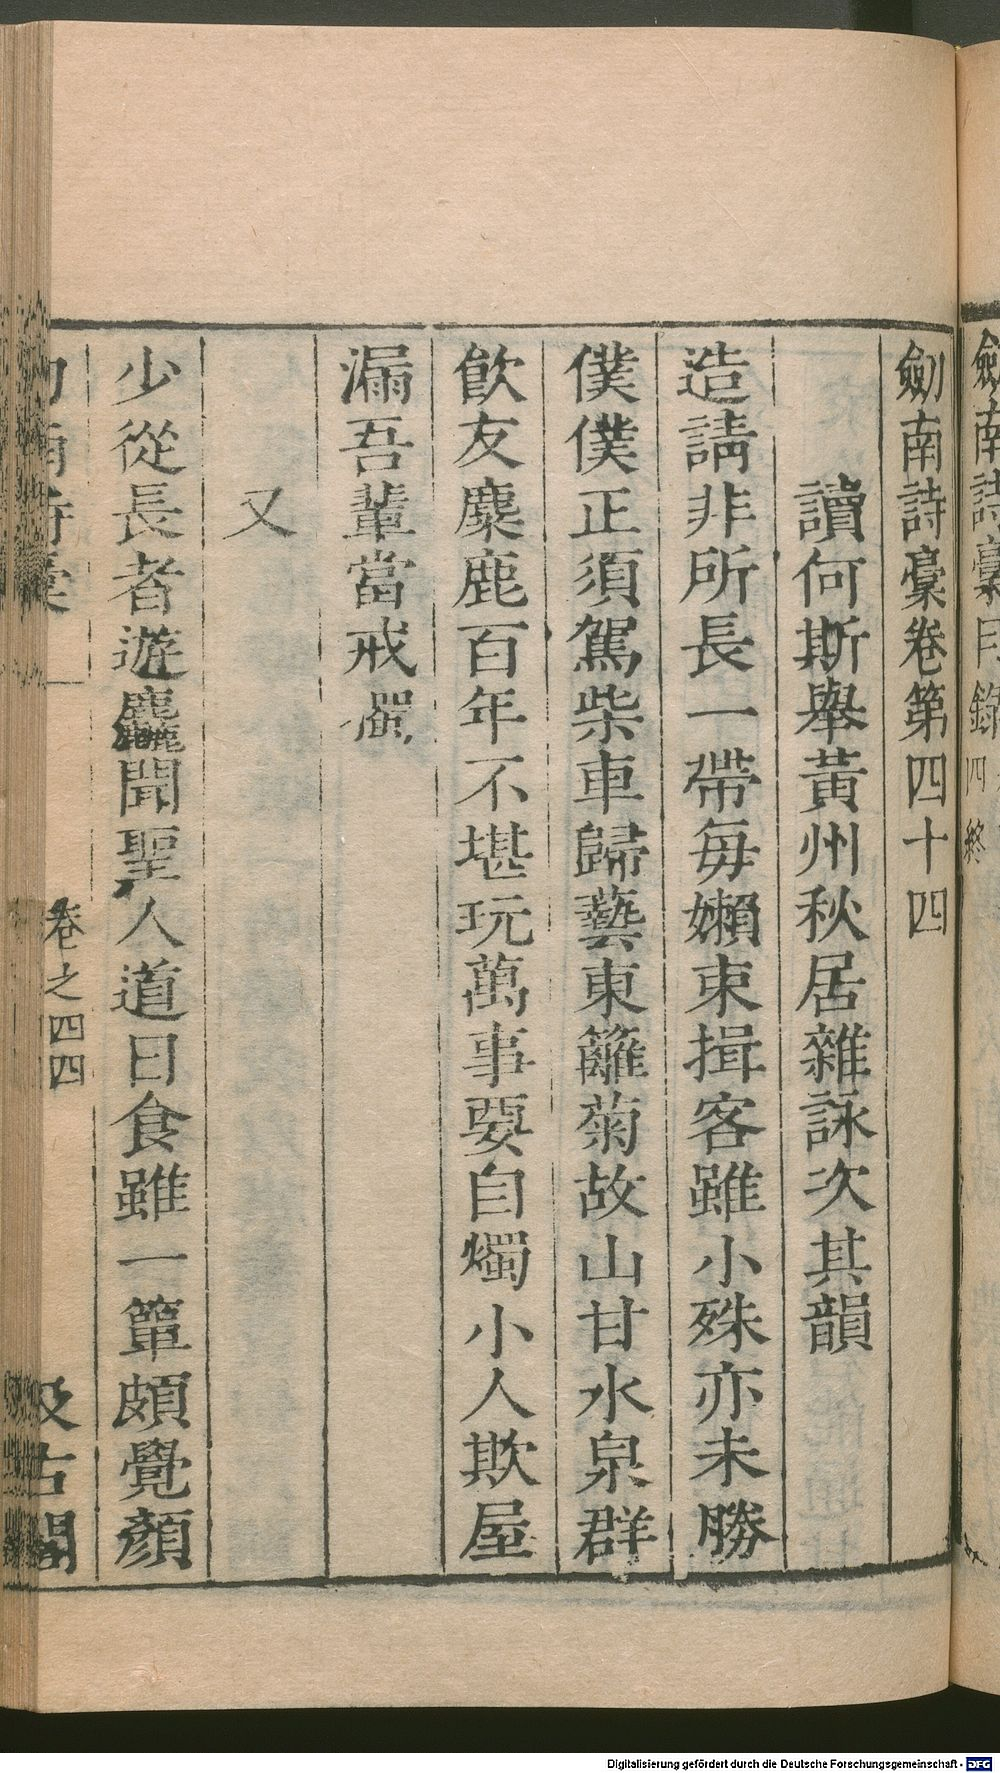 劒南詩稾目錄四終
劒南詩稾卷第四十四
讀何斯舉黃州秋居雜詠次其韻
造請非所長一帶每嬾束揖客雖小殊亦未勝
僕僕正須駕柴車歸藝東籬菊故山甘水泉群
飲友麋鹿百年不堪玩萬事要自燭小人欺屋
漏吾輩當戒
又
少從長者遊麤聞聖人道日食雖一簞頗覺顏
南詩稾
卷之四四
汲古閣
Digitalisierung gefördert durch die Deutsche Forschungsgemeinschaft - DFG